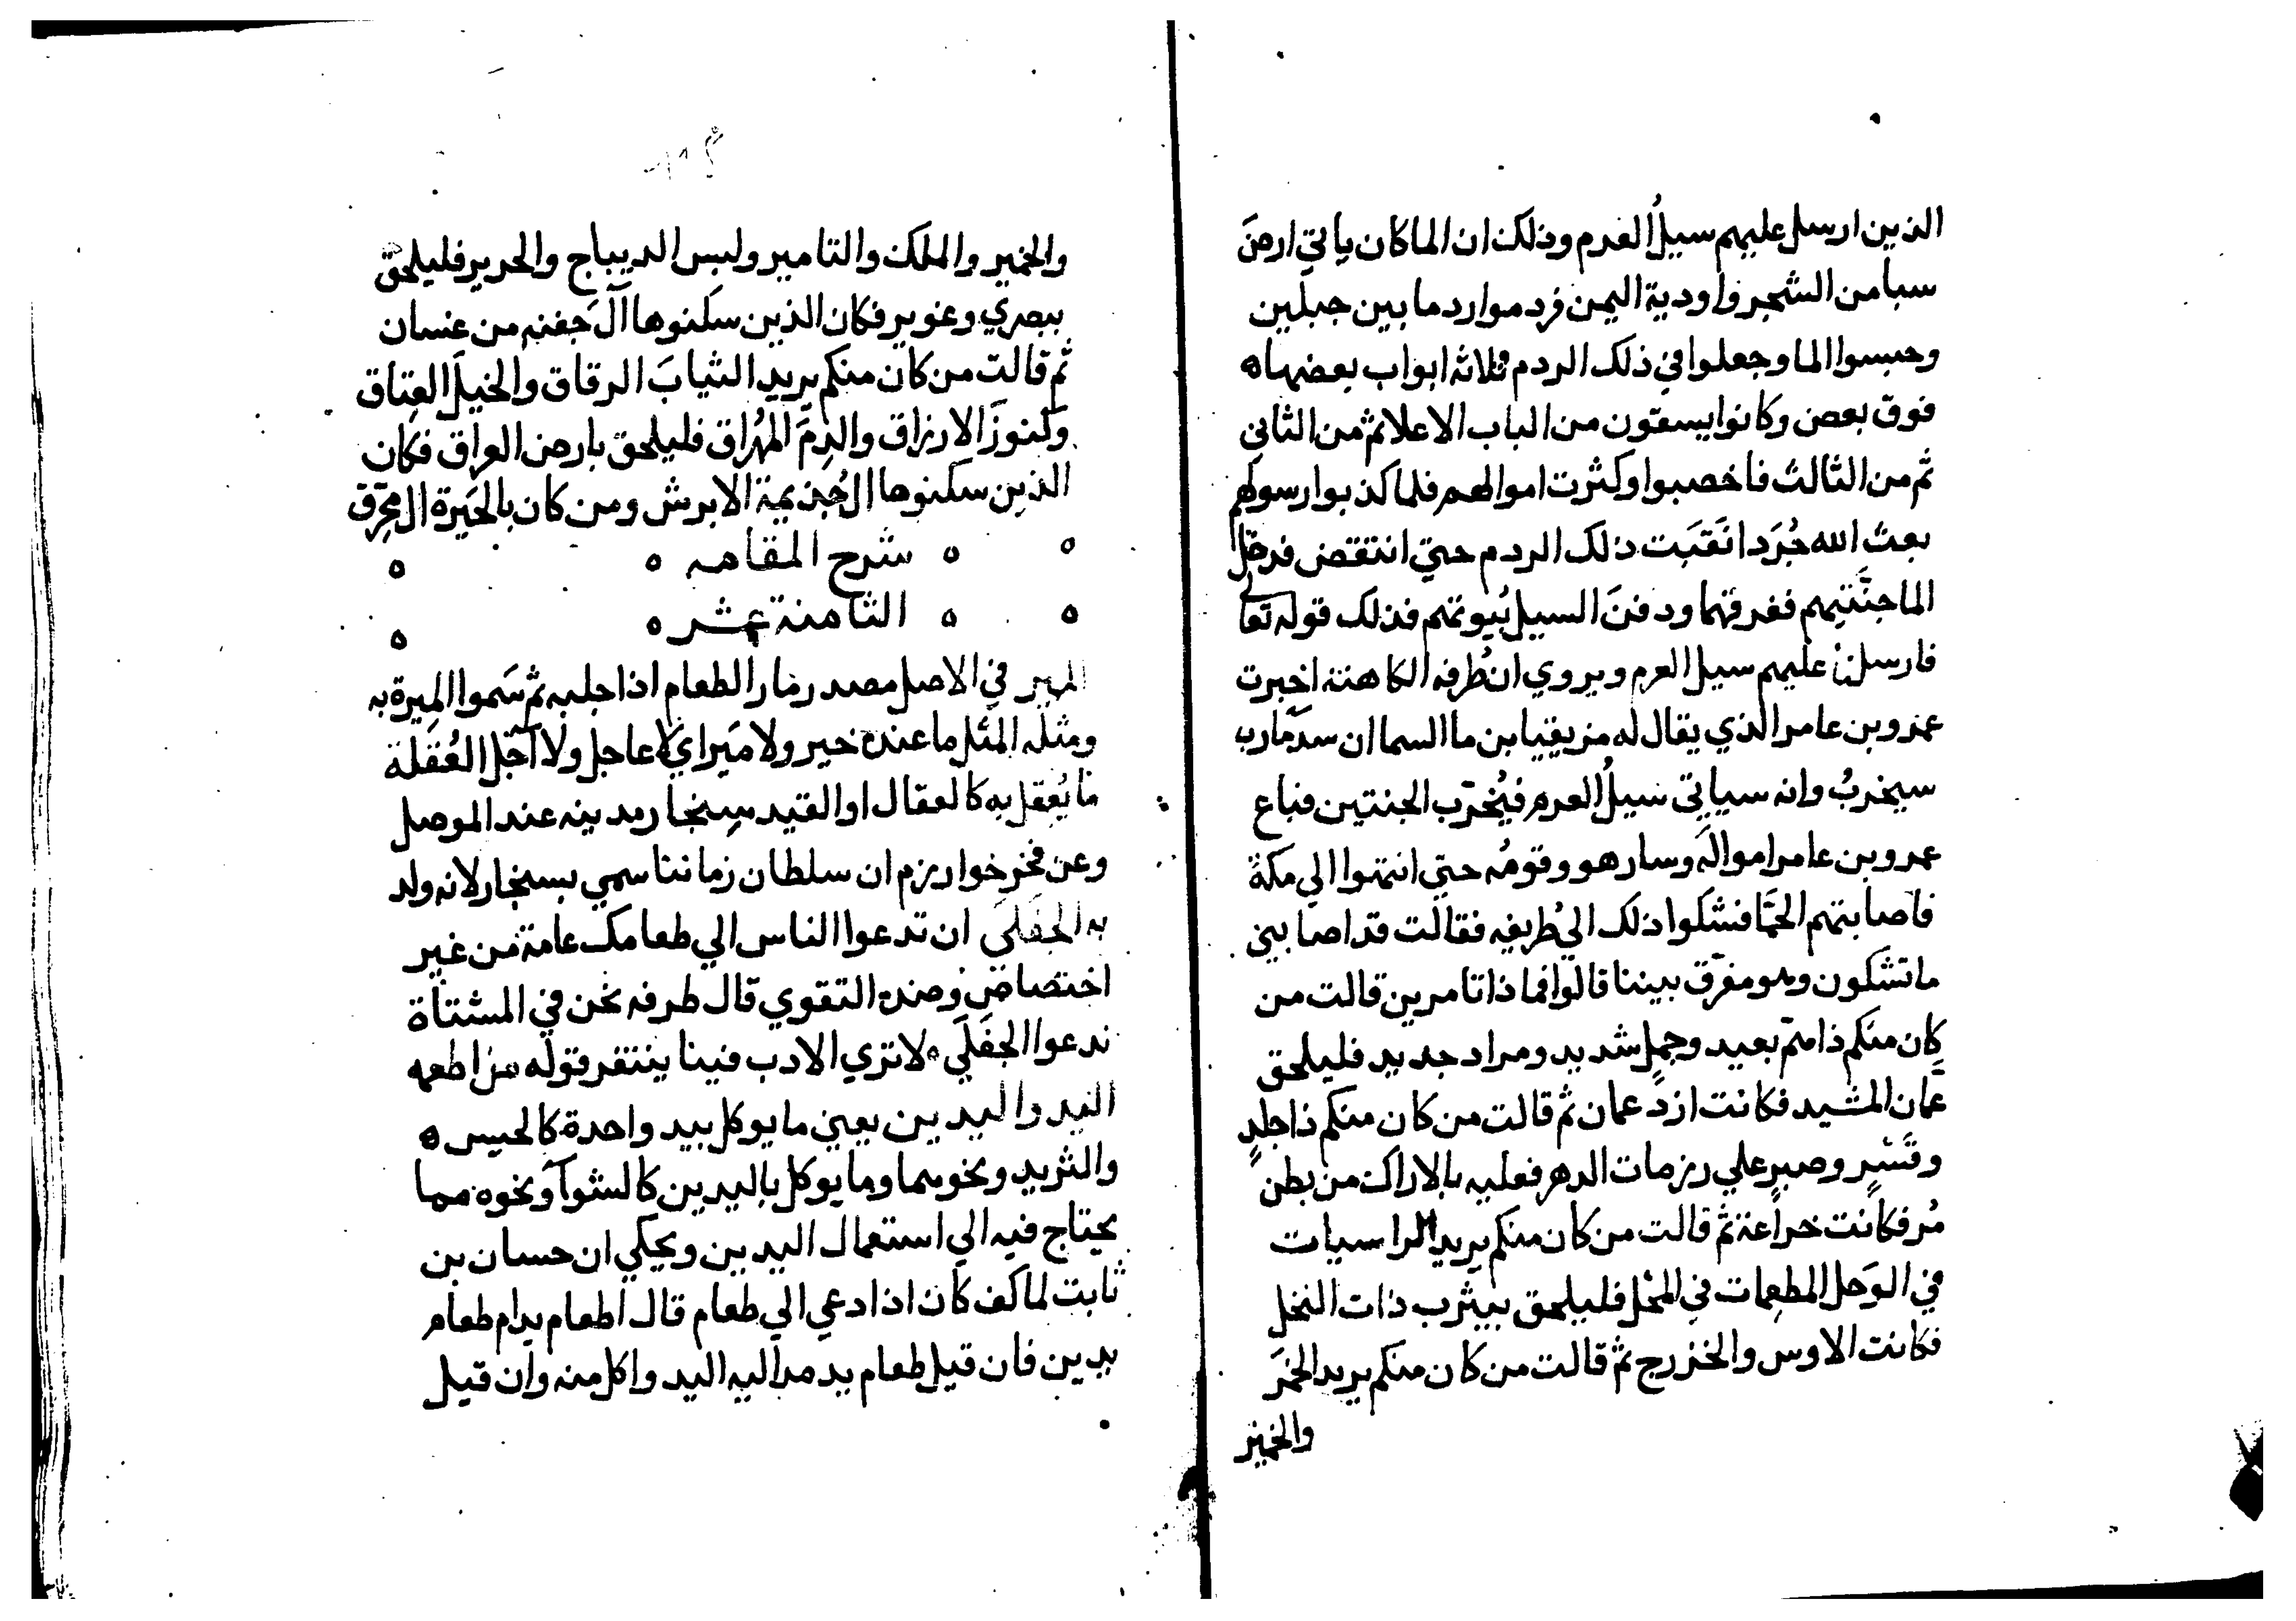 الذين ارسل عليهم سيلُ العرم وذلك ان الما كان ياتي ارضَ
سبا من الشحر واودية اليمن فردموا ردما بين جبلين
وحبسوا الما وجعلوا في ذلك الردم ثلاثة ابواب بعضها ه
فوق بعض وكانوا يسقون من الباب الاعلا ثم من الثاني
ثم من الثالث فاخصبوا وكثرت اموالهم فلما كذبوا رسولهم
بعث الله جُرَذا نَقَبَت ذلك الردم حتي انتقض فدخل
الما جنَّتيهم فغرقهما ودفنَ السيل بُيوتهم فذلك قوله تعالى
فارسلنا عليهم سيل العرم ويروي ان طُرفه الكاهنة اخبرت
عمرو بن عامر الذي يقال له مزيقيا بن ما السما ان سد مارب
سيخربُ وانه سياتي سيلُ العرم فيُخرّب الجنتين فباع
عمرو بن عامر اموالَه وسار هو وقومُه حتي انتهوا الي مكة
فاصابتهم الحمَّا فشكوا ذلك الي طُريفه فقالت قد اصابني
ما تشكون وهو مفرّق بيننا قالوا فما ذا تامرين قالت من
كان منكم ذا همّ بعيد وجمل شديد ومراد جديد فليلحق
بعُمان المشيد فكانت ازدُ عمان ثم قالت من كان منكم ذا جلدٍ
وقَسْرٍ وصبرٍ علي ازمات الدهر فعليه بالاراك من بطن
مُر فكانت خزاعة ثم قالت من كان منكم يريد الراسيات
في الوَحل المطعمات في المَحْل فليلحق بيثرب ذات النخل
فكانت الاوس والخزرج ثم قالت من كان منكم يريد الخمَر
والخمير
والخمير والملك والتامير ولبس الديباج والحرير فليلحق
ببصري وعوير فكان الذين سكنوها آلَ جفنه من غسان
ثم قالت من كان منكم يريد الثيابَ الرقاق والخيلَ العتاق
وكنوزَ الارزاق والدمَ المُهراق فليلحق بارض العراق فكان
الذين سكنوها ال جُذيمة الابرش ومن كان بالحَيرة ال محرّق
ه ه شرح المقامه ه ه
ه ه الثامنة عشر ه ه
المير في الاصل مصدر مار الطعام اذا جلبه ثم سَموا المِيرة به
ومثله المثل ما عنده خير ولا مَير اي لا عاجل ولا آجل العُقلة
ما يُعقل به كالعقال او القيد سِنجار مدينه عند الموصل
وعن فخر خوارزم ان سلطان زماننا سمي بسنجار لانه ولد
به الجَفَلَي ان تدعوا الناس الي طعامك عامة من غير
اختصاص وضده النقري قال طرفه نحن في المشتاة
ندعوا الجَفَلَي ه لا تري الادب فينا ينتقر قوله من اطعمه
اليد واليدين يعني ما يوكل بيد واحدة كالحيس ه
والثريد ونحوهما وما يوكل باليدين كالشوآ ونحوه مما
يحتاج فيه الي استعمال اليدين ويحكي ان حسان بن
ثابت لما كف كان اذا دعي الي طعام قال اطعام يد ام طعام
يدين فان قيل طعام يد مد اليه اليد واكل منه وان قيل